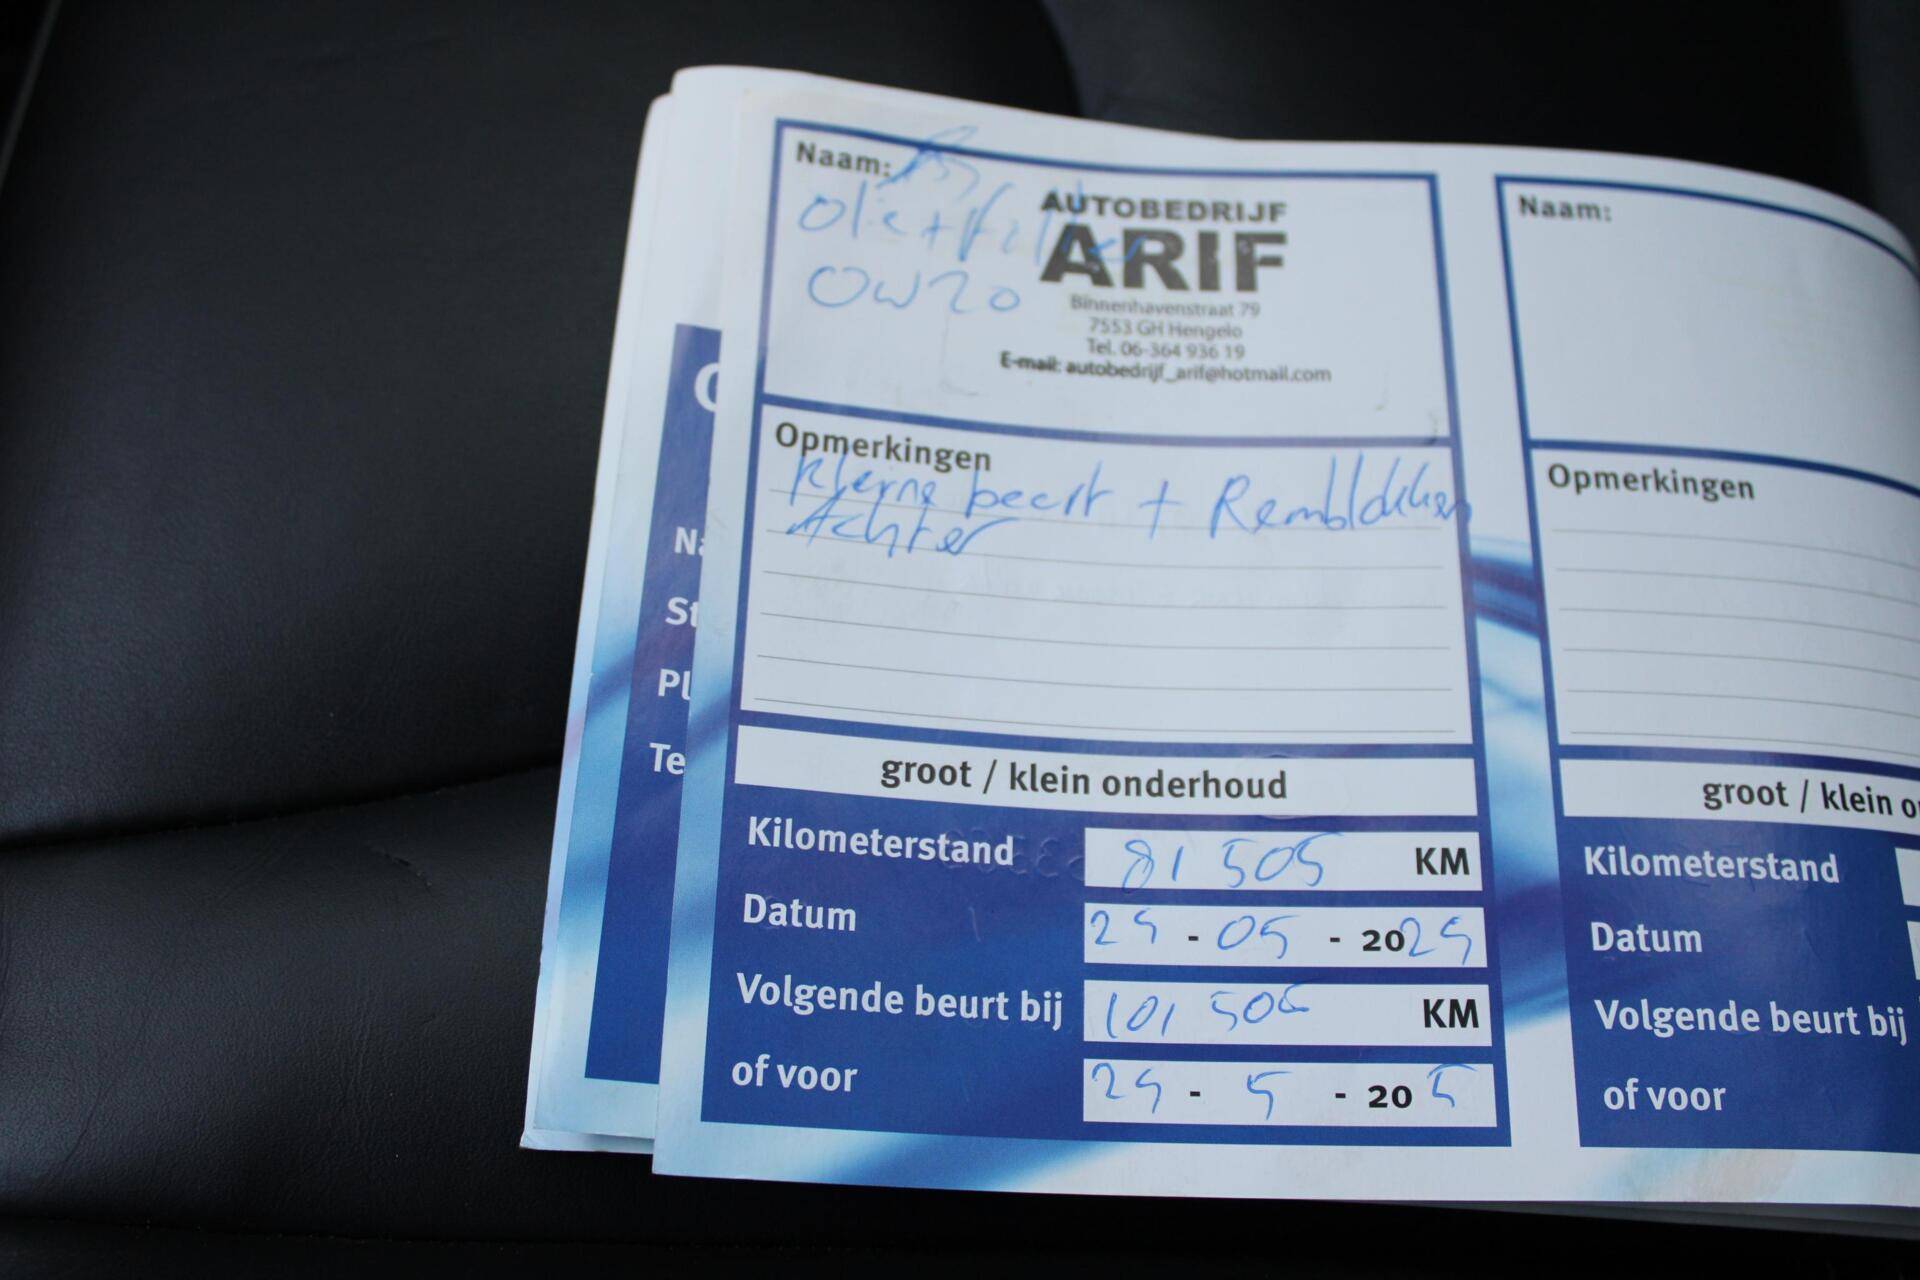 Naam:
Olie + filter
OW20
AUTOBEDRIJF
ARIF
Binnenhavenstraat 79
7553 GH Hengelo
Tel. 06-364 936 19
E-mail: autobedrijf_arif@hotmail.com
Opmerkingen
Kleine beert + Remblokken
Achter
groot / klein onderhoud
Kilometerstand 81 505 KM
Datum - 05 - 20
Volgende beurt bij 101 505 KM
of voor - 5 - 20 5
Naam:
Opmerkingen
groot / klein o
Kilometerstand
Datum
Volgende beurt bij
of voor
Na
St
Pl
Te